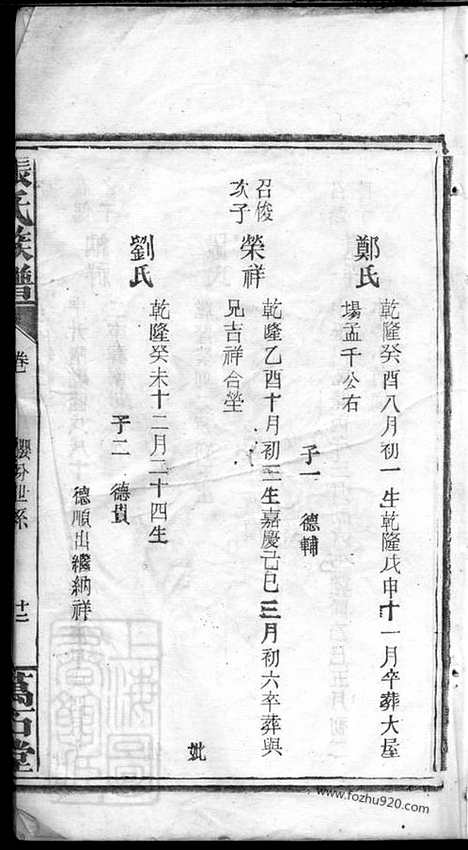 鄭氏
乾隆癸酉八月初一生乾隆戊申十一月卒葬大屋
場孟千公右
子一 德輔
召俊
次子
榮祥
乾隆乙酉十月初三生嘉慶己巳三月初六卒葬與
兄吉祥合塋
妣
劉氏
乾隆癸未十二月二十四生
子二 德貴
德順出繼納祥
張氏族譜
卷
世系
十二
萬石堂
www.fozhu920.com